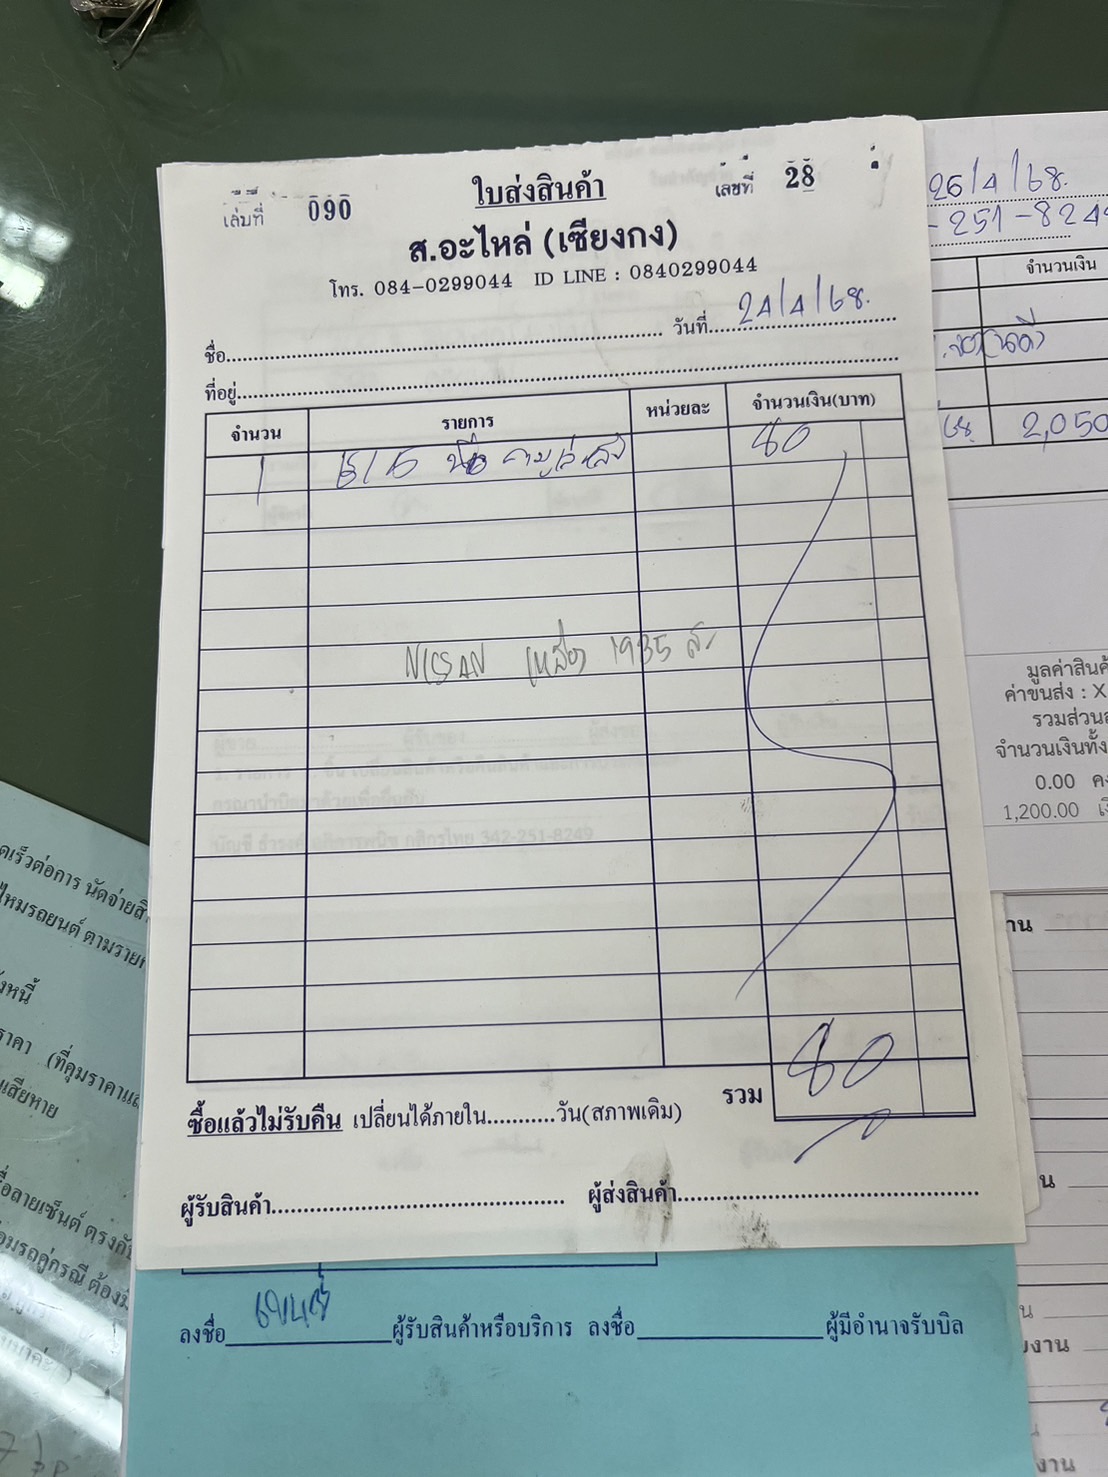 ใบส่งสินค้า
เล่มที่ 090
เลขที่ 28
ส.อะไหล่ (เซียงกง)
โทร. 084-0299044 ID LINE : 0840299044
ชื่อ
วันที่ 24/4/68.
ที่อยู่
จำนวน รายการ หน่วยละ จำนวนเงิน(บาท)
1 80
NISSAN 1935
รวม 80
ซื้อแล้วไม่รับคืน เปลี่ยนได้ภายใน...........วัน(สภาพเดิม)
ผู้รับสินค้า ผู้ส่งสินค้า
ลงชื่อ ผู้รับสินค้าหรือบริการ ลงชื่อ ผู้มีอำนาจรับบิล
26/4/68.
-251-824
จำนวนเงิน
2,050
มูลค่าสินค้
ค่าขนส่ง : X
รวมส่วนล
จำนวนเงินทั้ง
0.00
1,200.00
าน
น
งาน
งาน
ดเร็วต่อการ นัดจ่ายสิ
ไหมรถยนต์ ตามราย
งหนี้
ราคา (ที่คุมราคาแล
เสียหาย
ื่อลายเซ็นต์ ตรงกับ
อมรถคู่กรณี ต้องมี